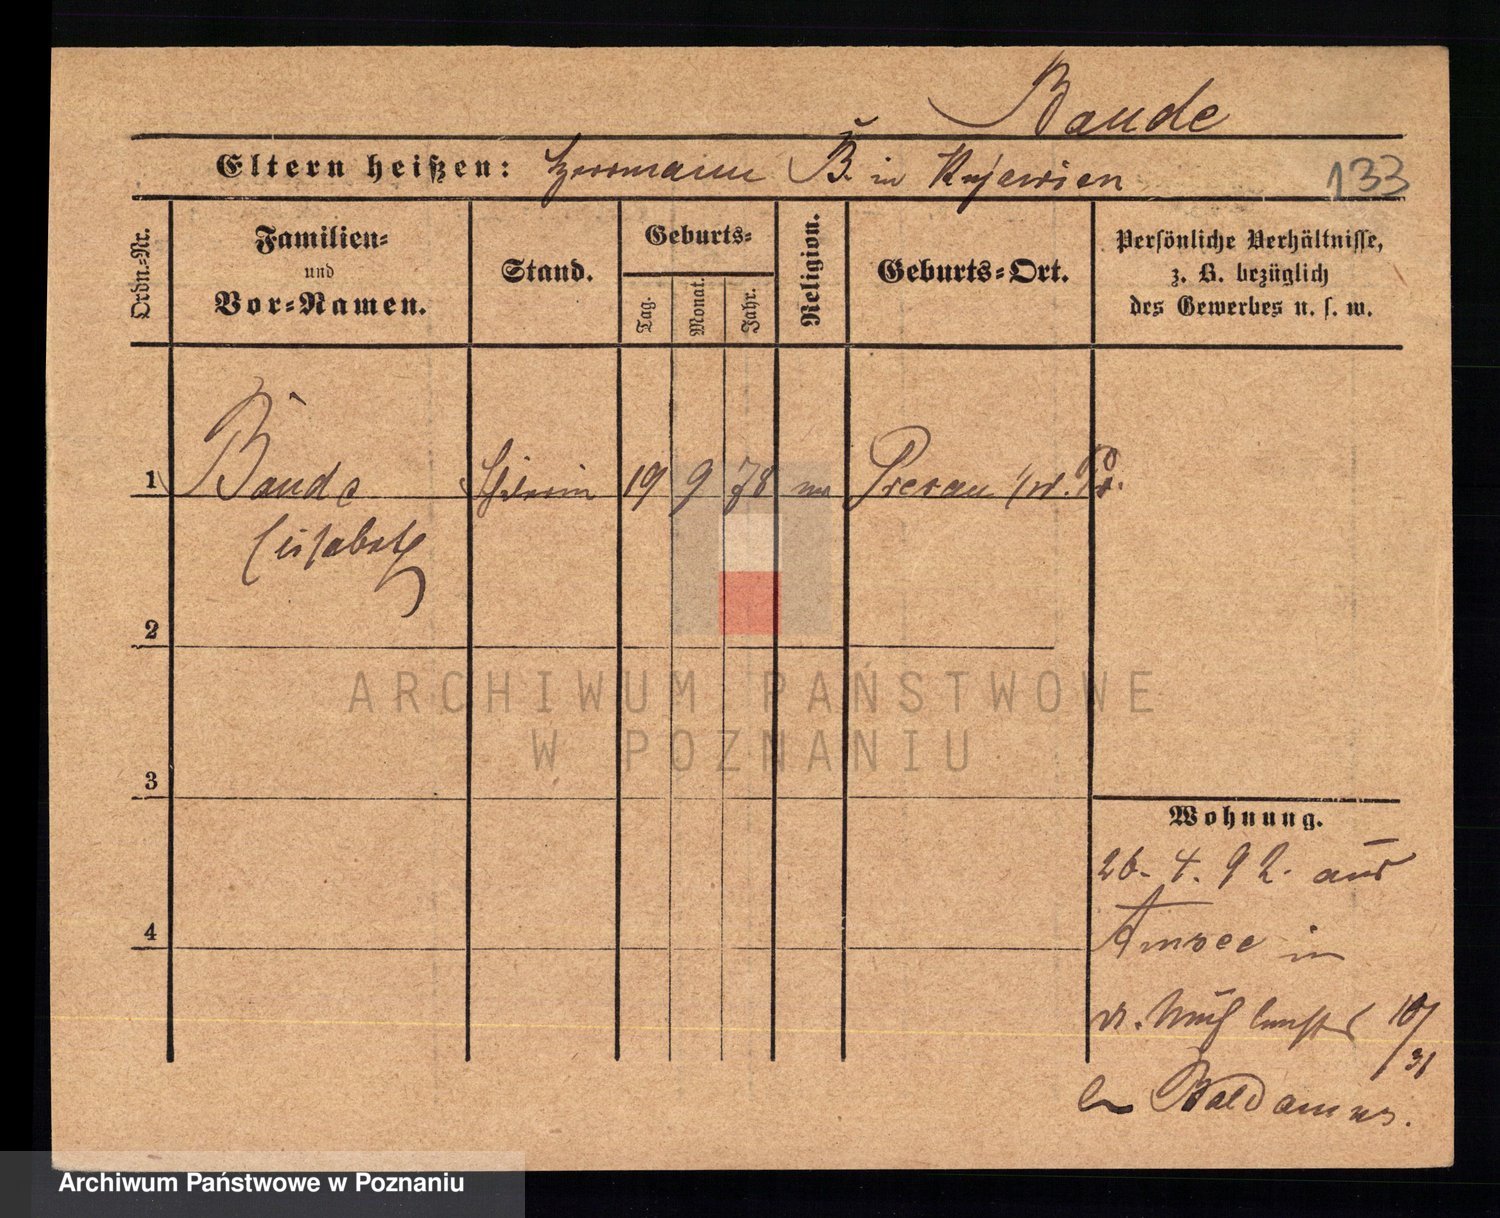 Baude
Eltern heißen: Herrmann B. in Kujawien
133
Ordn.-Nr.
Familien-
und
Vor-Namen.
Stand.
Geburts-
Tag.
Monat.
Jahr.
Religion.
Geburts-Ort.
Persönliche Verhältnisse,
z. B. bezüglich
des Gewerbes u. s. w.
1
Baude
Elisabeth
19
9
78
Pr.
2
3
4
Wohnung.
26. 4. 92. aus
Amsee in
10/31
Baldamus.
ARCHIWUM PAŃSTWOWE
W POZNANIU
Archiwum Państwowe w Poznaniu